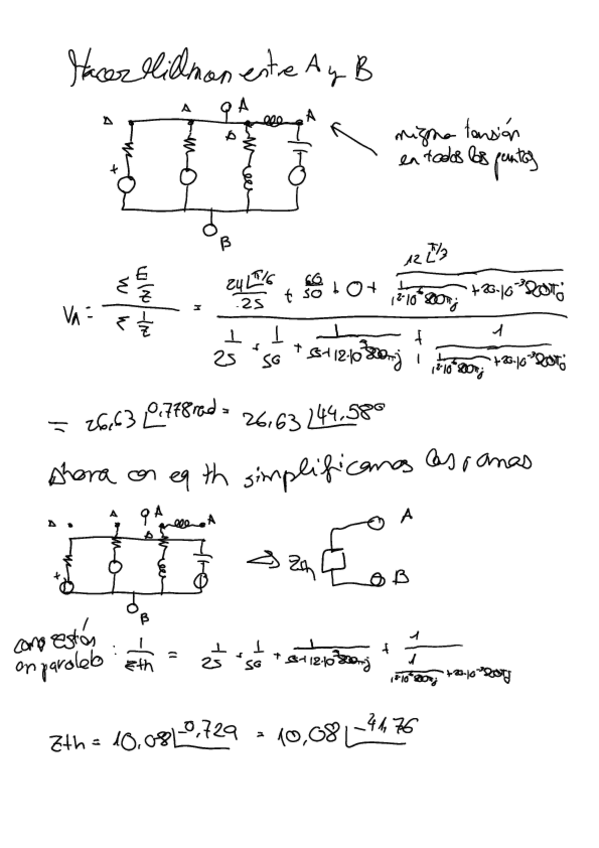 Hacer Millman entre A y B
A A A A
A
+
B
misma tensión
en todos los puntos
VA = Σ E/Z / Σ 1/Z = (24∠π/6 / 25 + 60/50 + 0 + 12∠π/3 / (1/(12·10⁻⁶800πj) + 20·10⁻³800πj)) / (1/25 + 1/50 + 1/(55+12·10⁻³800πj) + 1/(1/(12·10⁻⁶800πj) + 20·10⁻³800πj))
= 26,63∠0,778rad = 26,63∠44,58º
Ahora con eq th simplificamos las ramas
A A A A
A
+
B
=> Zth
A
B
como están
en paralelo : 1/Zth = 1/25 + 1/50 + 1/(55+12·10⁻³800πj) + 1/(1/(12·10⁻⁶800πj) + 20·10⁻³800πj)
Zth = 10,08∠-0,729 = 10,08∠-41,76